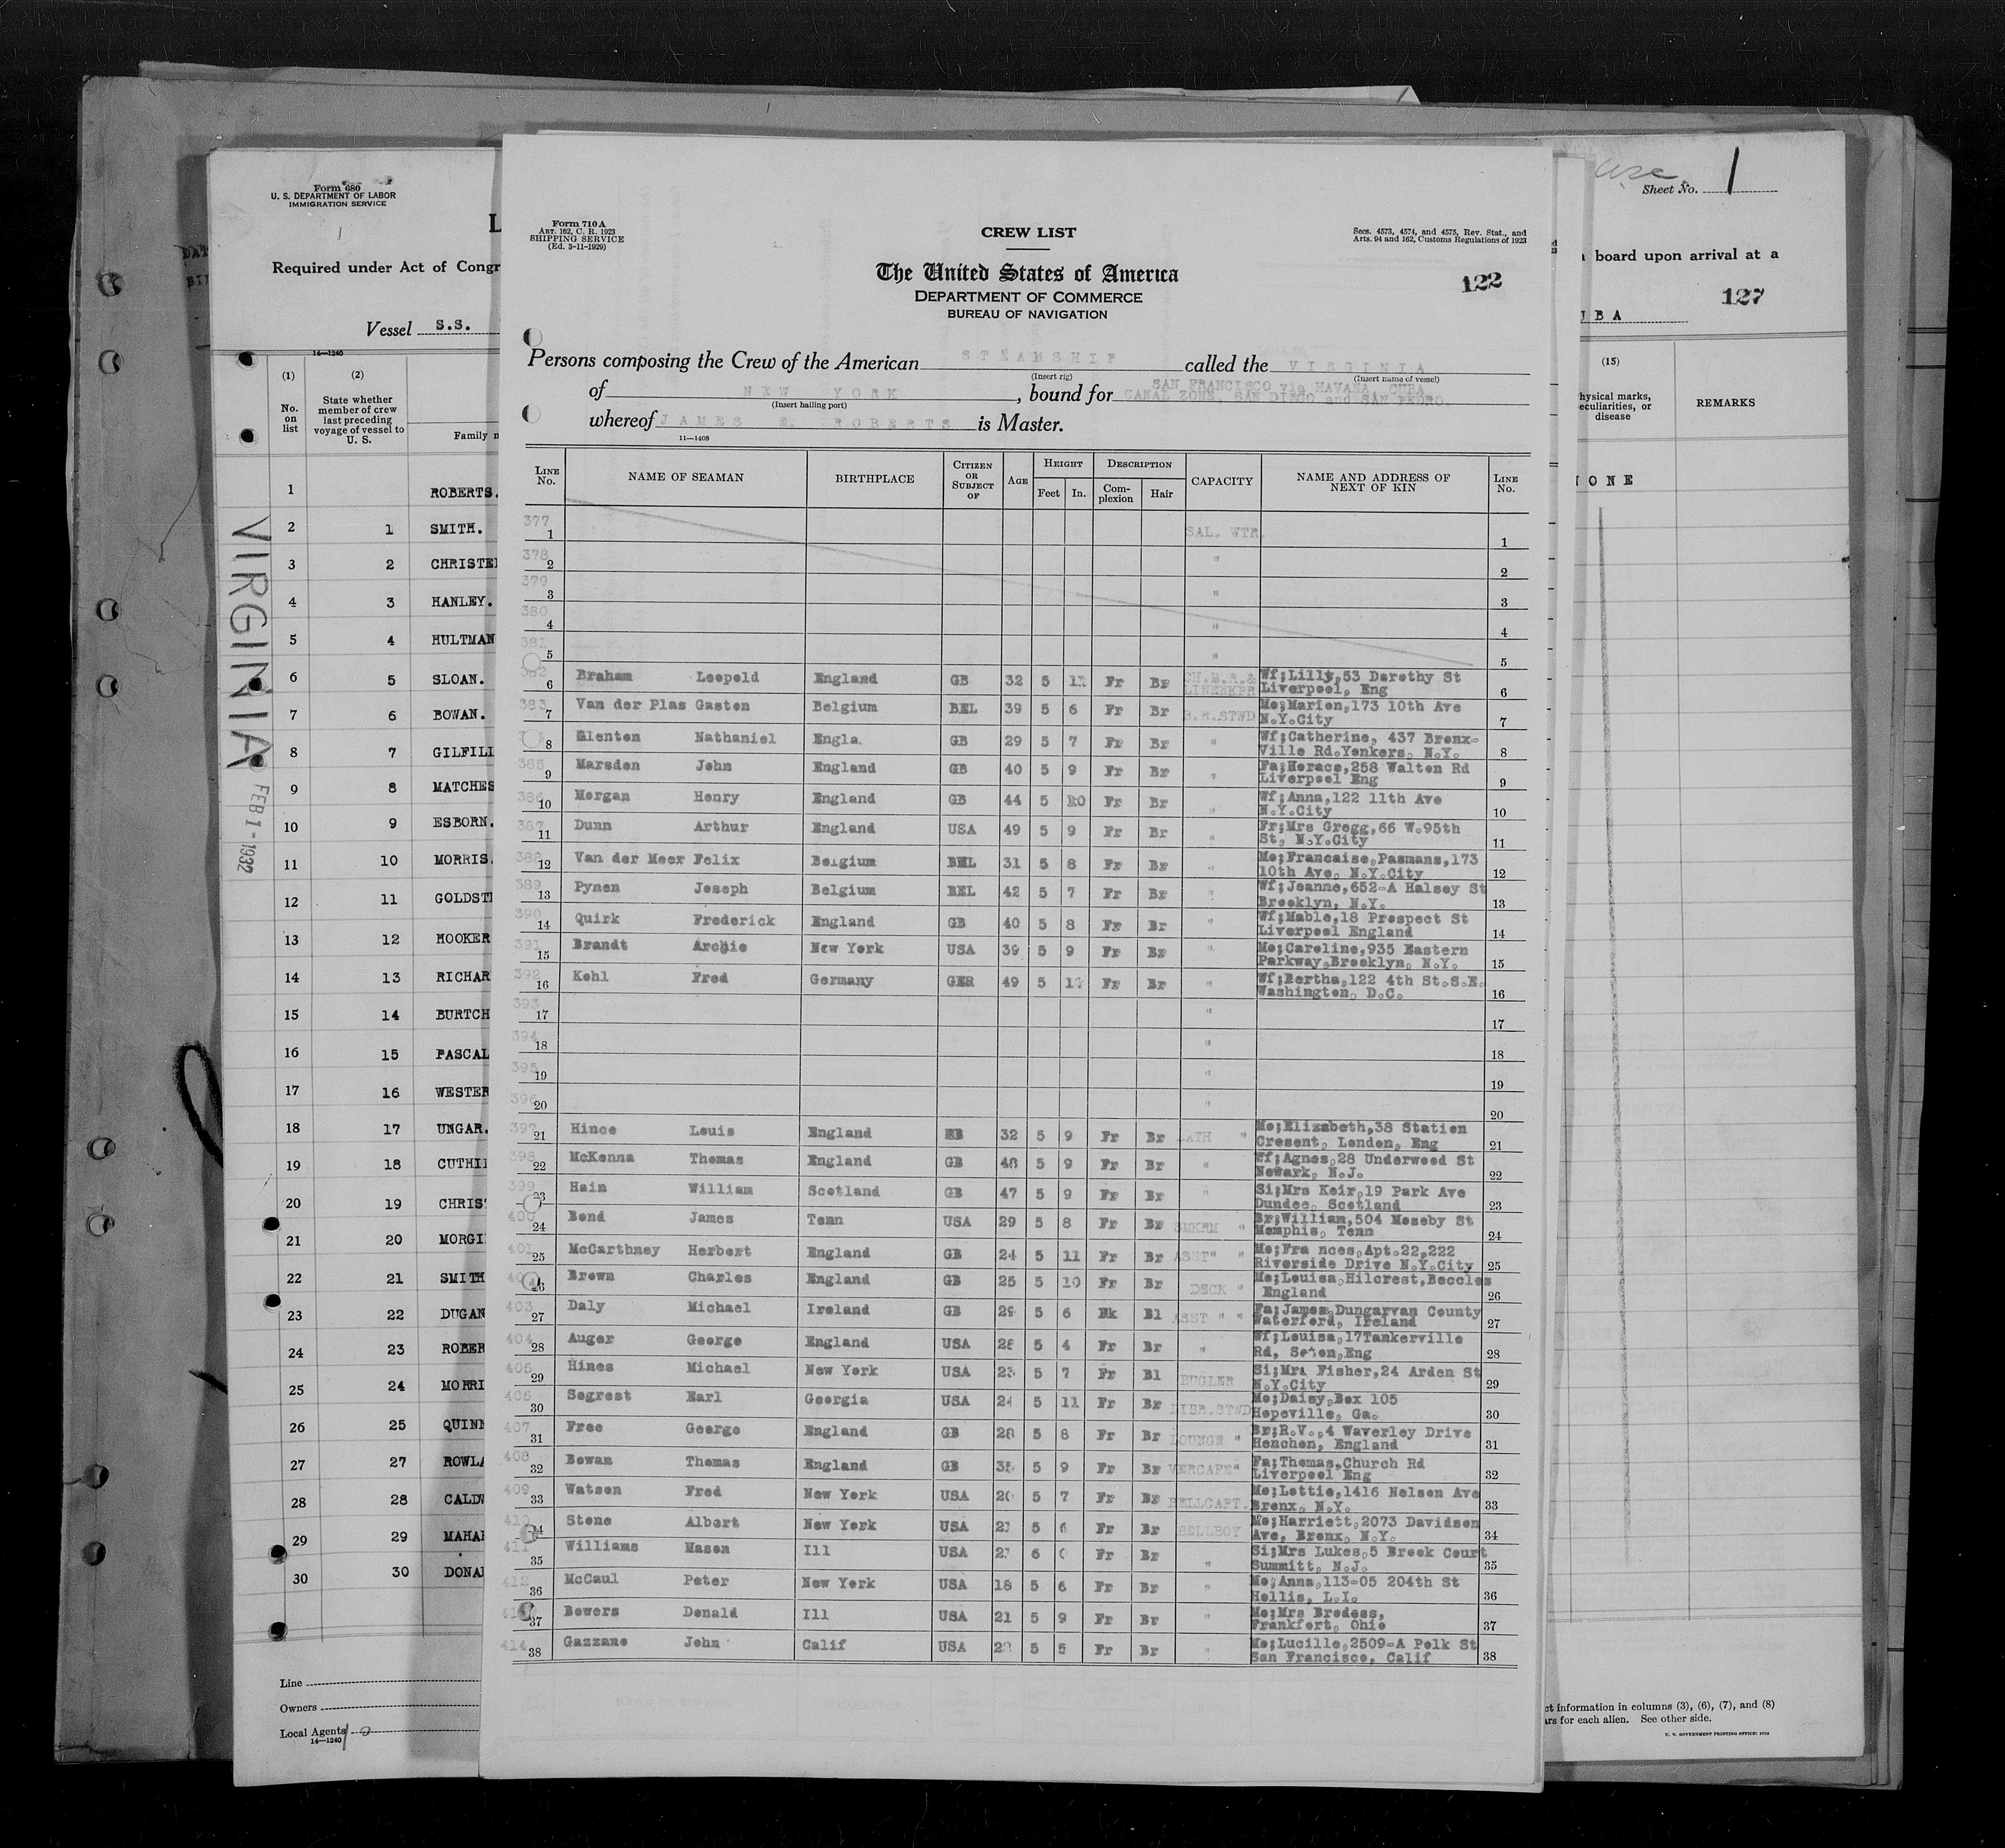 Form 680
U. S. DEPARTMENT OF LABOR
IMMIGRATION SERVICE
Required under Act of Congr
Vessel S.S.
14—1240
(1) (2)
No. on list
State whether member of crew last preceding voyage of vessel to U. S.
Family n
1 ROBERTS.
2 1 SMITH.
3 2 CHRISTE
4 3 HANLEY.
5 4 HULTMAN
6 5 SLOAN.
7 6 BOWAN.
8 7 GILFILL
9 8 MATCHES
10 9 ESBORN.
11 10 MORRIS.
12 11 GOLDST
13 12 HOOKER
14 13 RICHAR
15 14 BURTCH
16 15 PASCAL
17 16 WESTER
18 17 UNGAR.
19 18 CUTHI
20 19 CHRIS
21 20 MORGI
22 21 SMITH
23 22 DUGAN
24 23 ROBER
25 24 MORRI
26 25 QUINN
27 27 ROWLA
28 28 CALDW
29 29 MAHA
30 30 DONA
VIRGINIA
FEB 1 - 1932
Line
Owners
Local Agents
14—1240
Form 710 A
ART. 162, C. R. 1923
SHIPPING SERVICE
(Ed. 3-11-1929)
CREW LIST
Secs. 4573, 4574, and 4575, Rev. Stat., and
Arts. 94 and 162, Customs Regulations of 1923
The United States of America
DEPARTMENT OF COMMERCE
BUREAU OF NAVIGATION
122
Persons composing the Crew of the American STEAMSHIP called the VIRGINIA
(Insert rig) (Insert name of vessel)
of NEW YORK, bound for SAN FRANCISCO via HAVANA, CUBA
CANAL ZONE, SAN DIEGO and SAN PEDRO.
(Insert hailing port)
whereof JAMES E. ROBERTS is Master.
11—1408
LINE No. NAME OF SEAMAN BIRTHPLACE CITIZEN OR SUBJECT OF AGE HEIGHT Feet In. DESCRIPTION Complexion Hair CAPACITY NAME AND ADDRESS OF NEXT OF KIN LINE No.
377 1 SAL. WTR. 1
378 2 " 2
379 3 " 3
380 4 " 4
381 5 " 5
382 6 Braham Leopold England GB 32 5 11 Fr Br CH.B.R.& LINENKPR Wf;Lilly,53 Dorothy St Liverpool, Eng 6
383 7 Van der Plas Gaston Belgium BEL 39 5 6 Fr Br B.R.STWD Mo;Marion,173 10th Ave N.Y.City 7
8 Glenton Nathaniel Engla. GB 29 5 7 Fr Br " Wf;Catherine, 437 Bronx-Ville Rd.Yonkers, N.Y. 8
385 9 Marsden John England GB 40 5 9 Fr Br " Fa;Horace,258 Walton Rd Liverpool Eng 9
386 10 Morgan Henry England GB 44 5 10 Fr Br " Wf;Anna,122 11th Ave N.Y.City 10
387 11 Dunn Arthur England USA 49 5 9 Fr Br " Fr;Mrs Gregg,66 W.95th St, N.Y.City 11
388 12 Van der Meer Felix Belgium BEL 31 5 8 Fr Br " Mo;Francaise,Pasmans,173 10th Ave, N.Y.City 12
389 13 Pynen Joseph Belgium BEL 42 5 7 Fr Br " Wf;Jeanne,652-A Halsey St Brooklyn, N.Y. 13
390 14 Quirk Frederick England GB 40 5 8 Fr Br " Wf;Mable,18 Prospect St Liverpool England 14
391 15 Brandt Archie New York USA 39 5 9 Fr Br " Mo;Caroline,935 Eastern Parkway,Brooklyn, N.Y. 15
392 16 Kohl Fred Germany GER 49 5 Fr Br " Wf;Bertha,122 4th St.S.E. Washington, D.C. 16
393 17 " 17
394 18 " 18
395 19 " 19
396 20 " 20
397 21 Hince Louis England 32 5 9 Fr Br BATH " Mo;Elizabeth,38 Station Cresent, London, Eng 21
398 22 McKenna Thomas England GB 48 5 9 Fr Br " Wf;Agnes,28 Underwood St Newark, N.J. 22
399 23 Hain William Scotland GB 47 5 9 Fr Br " Si;Mrs Keir,19 Park Ave Dundee, Scotland 23
400 24 Bond James Tenn USA 29 5 8 Fr Br SMKRM " Br;William,504 Moseby St Memphis, Tenn 24
401 25 McCarthney Herbert England GB 24 5 11 Fr Br ASST" " Mo;Fra nces,Apt.22,222 Riverside Drive N.Y.City 25
26 Brown Charles England GB 25 5 10 Fr Br DECK " Mo;Louisa,Hilcrest,Beccles England 26
403 27 Daly Michael Ireland GB 29 5 6 Bl ASST " " Fa;James,Dungarvan County Waterford, Ireland 27
404 28 Auger George England USA 28 5 4 Fr Br " Wf;Louisa,17Tankerville Rd, Eng 28
405 29 Hines Michael New York USA 23 5 7 Fr Bl BUGLER Si;Mrs Fisher,24 Arden St N.Y.City 29
406 30 Segrest Earl Georgia USA 24 5 11 Fr Br LIBR.STWD Mo;Daisy,Box 105 Hopeville, Ga. 30
407 31 Free George England GB 28 5 8 Fr Br LOUNGE " Br;R.V.,4 Waverley Drive Henchen, England 31
408 32 Bowan Thomas England GB 5 9 Fr Br VERCAFE" Fa;Thomas,Church Rd Liverpool Eng 32
409 33 Watson Fred New York USA 5 7 Fr Br BELLCAPT. Mo;Lottie,1416 Nelson Ave Bronx, N.Y. 33
410 34 Stone Albert New York USA 5 6 Fr Br BELLBOY Mo;Harriett,2073 Davidson Ave, Bronx, N.Y. 34
411 35 Williams Mason Ill USA 6 Fr Br " Si;Mrs Lukes,5 Brook Court Summitt, N.J. 35
412 36 McCaul Peter New York USA 18 5 6 Fr Br " Mo;Anna,113-05 204th St Hollis, L.I. 36
37 Bowers Donald Ill USA 21 5 9 Fr Br " Mo;Mrs Bredess, Frankfort, Ohio 37
414 38 Gazzano John Calif USA 5 5 Fr Br " Mo;Lucille,2509-A Polk St San Francisco, Calif 38
Sheet No. 1
board upon arrival at a
127
UBA
(15)
hysical marks, eculiarities, or disease
REMARKS
NONE
ct information in columns (3), (6), (7), and (8)
ars for each alien. See other side.
U. S. GOVERNMENT PRINTING OFFICE